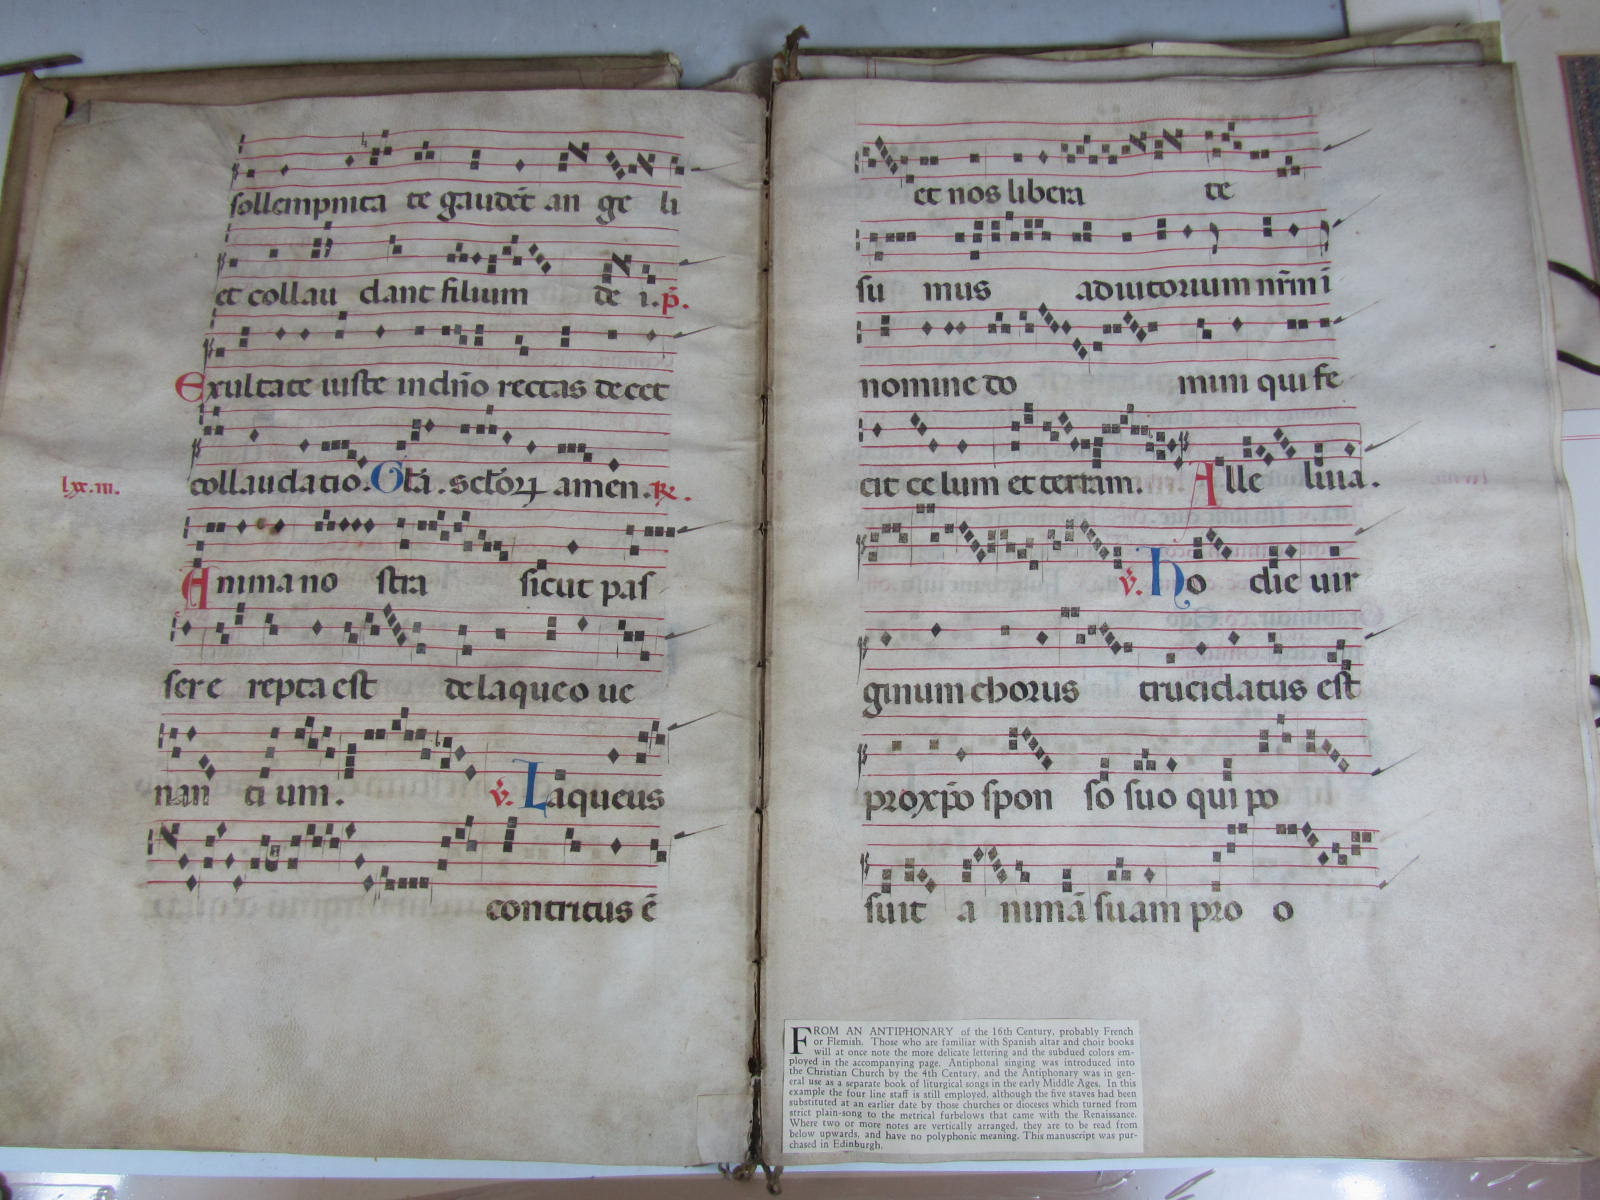 sollempnita te gaudēt an ge li
et collau dant filium de i. p̄.
Exultate iuste in dn̄o rectas decet
collaudatio. Gl̄a. sctōrꝝ amen. ℟.
lxx.iii.
Anima no stra sicut pas
ser e repta est de laqueo ue
nan ti um. v̄. Laqueus
contritus ē
et nos libera te
su mus adiutorium nr̄m ī
nomine do mini qui fe
cit ce lum et terram. Alle luia.
v̄. Ho die uir
ginum chorus trucidatus est
pro xp̄o spon so suo qui po
suit a nimā suam pro o
FROM AN ANTIPHONARY of the 16th Century, probably French
or Flemish. Those who are familiar with Spanish altar and choir books
will at once note the more delicate lettering and the subdued colors em-
ployed in the accompanying page. Antiphonal singing was introduced into
the Christian Church by the 4th Century, and the Antiphonary was in gen-
eral use as a separate book of liturgical songs in the early Middle Ages. In this
example the four line staff is still employed, although the five staves had been
substituted at an earlier date by those churches or dioceses which turned from
strict plain-song to the metrical furbelows that came with the Renaissance.
Where two or more notes are vertically arranged, they are to be read from
below upwards, and have no polyphonic meaning. This manuscript was pur-
chased in Edinburgh.